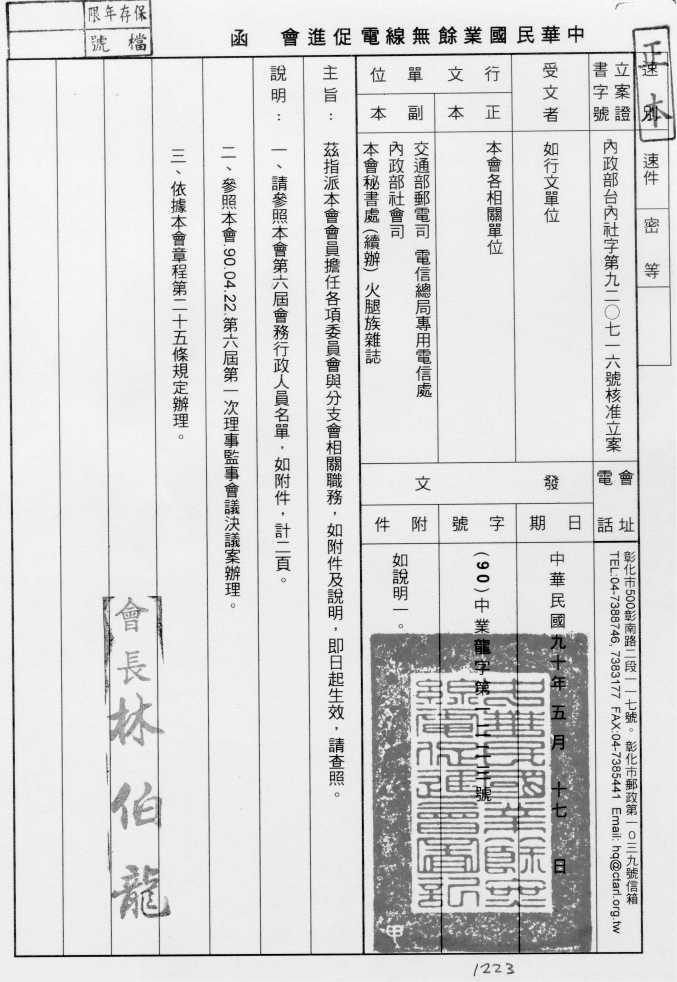 中華民國業餘無線電促進會 函
保存年限
檔號
正本
速別 速件 密等
立案證書字號 內政部台內社字第九二〇七一六號核准立案
會址電話
彰化市500彰南路二段一一七號。彰化市郵政第一0三九號信箱
TEL:04-7388746, 7383177 FAX:04-7385441 Email: hq@ctarl.org.tw
受文者 如行文單位
行文單位
正本 本會各相關單位
副本 交通部郵電司 電信總局專用電信處
內政部社會司
本會秘書處(續辦) 火腿族雜誌
發文
日期 中華民國九十年五月十七日
字號 (90)中業龍字第一二二三號
附件 如說明一。
主旨：茲指派本會會員擔任各項委員會與分支會相關職務，如附件及說明，即日起生效，請查照。
說明：一、請參照本會第六屆會務行政人員名單，如附件，計二頁。
二、參照本會.90.04.22.第六屆第一次理事監事會議決議案辦理。
三、依據本會章程第二十五條規定辦理。
會長林伯龍
甲
1223